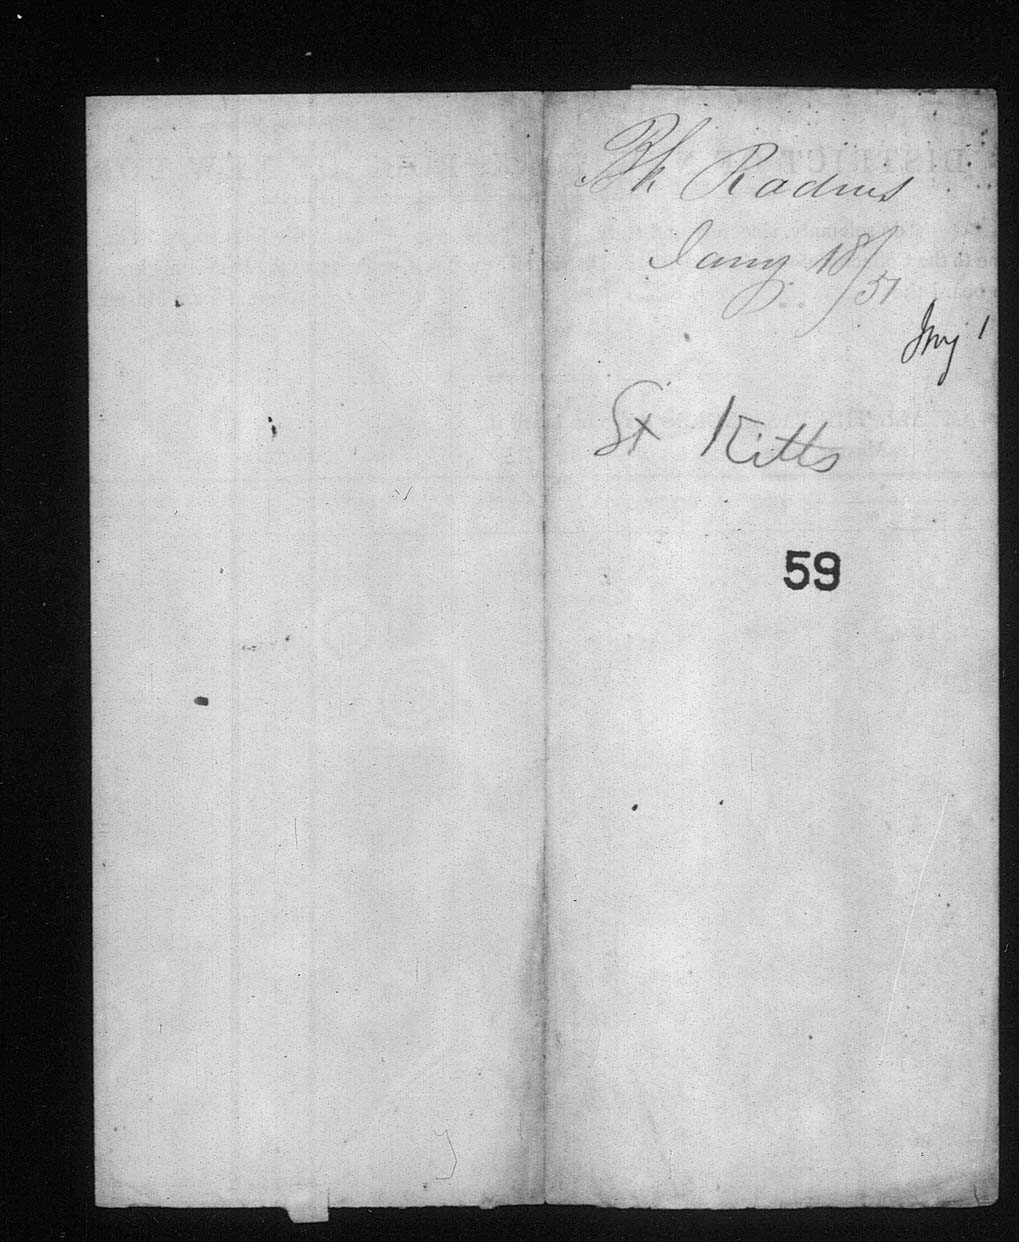 Bk Radius
Jany 18/51
Jmy 1
St Kitts
59